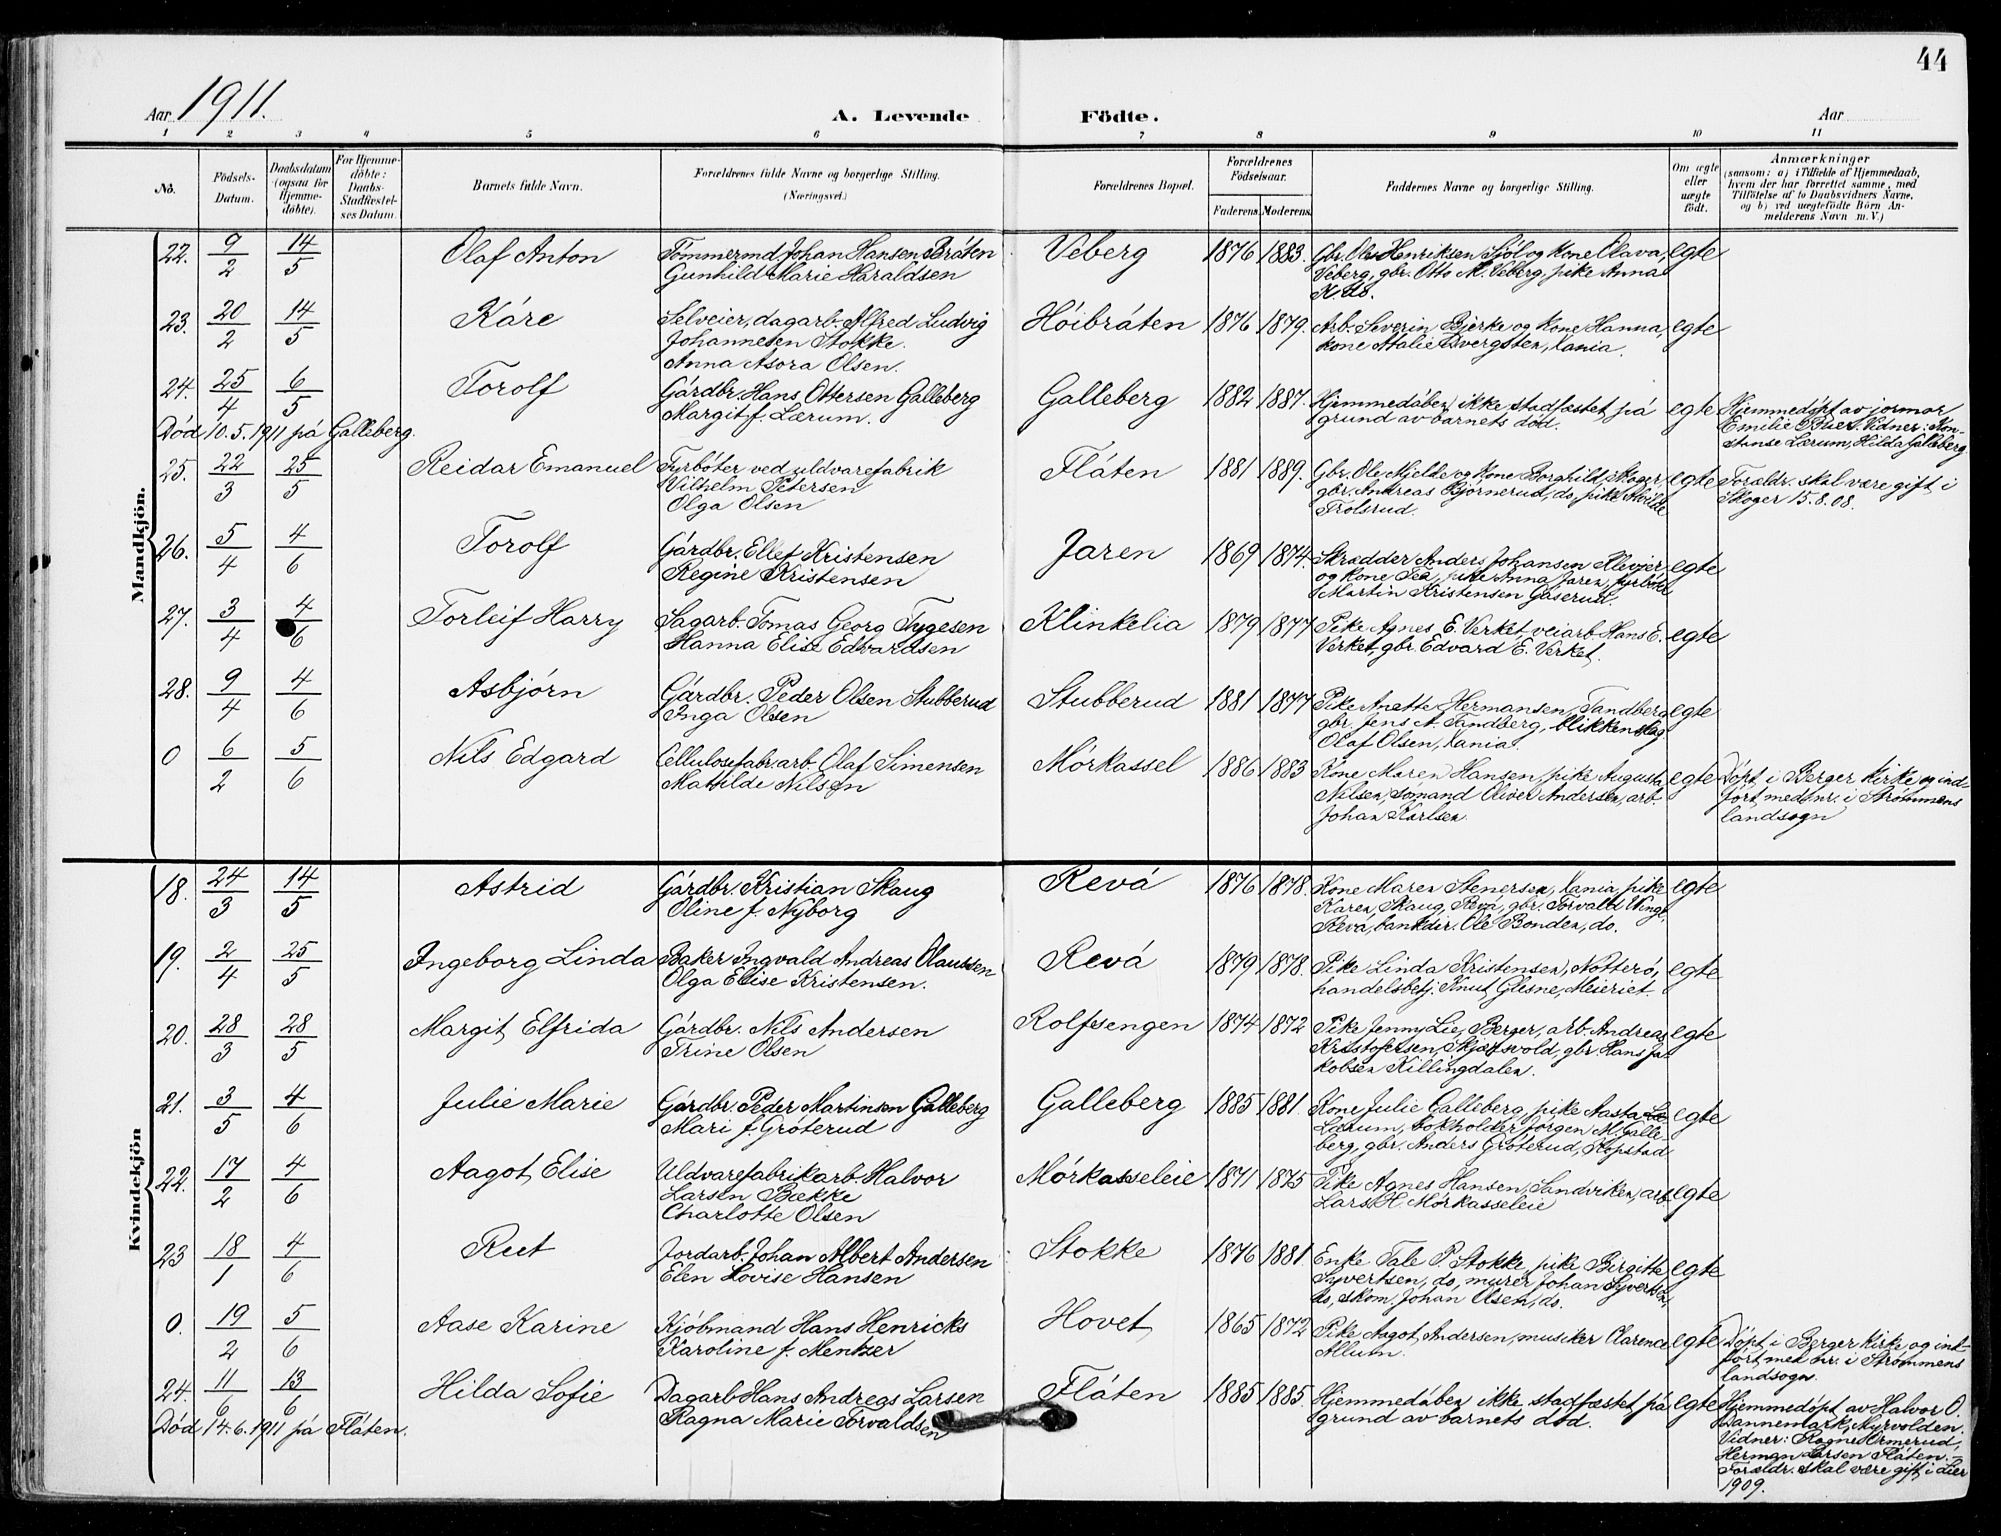 44
Aar 1911.
A. Levende Födte.
Aar
1 2 3 4 5 6 7 8 9 10 11
No.
Födsels-Datum.
Daabsdatum (ogsaa for Hjemme-döbte).
For Hjemme-döbte: Daabs-Stadfæstel-ses Datum.
Barnets fulde Navn.
Forældrenes fulde Navne og borgerlige Stilling.
(Næringsvei.)
Forældrenes Bopæl.
Forældrenes Födselsaar.
Faderens. Moderens.
Faddernes Navne og borgerlige Stilling.
Om ægte eller uægte födt.
Anmærkninger
(saasom: a) i Tilfælde af Hjemmedaab,
hvem der har forrettet samme, med
Tilföielse af to Daabsvidners Navne,
og b) ved uægtefödte Börn An-
melderens Navn m. V.)
Mandkjön.
22. 9/2 14/5 Olaf Anton Tömmermd. Johan Hansen Bråten Veberg 1876 1883. Gbr. Ole Henriksen Sjöl og kone Olava, egte
Gunhild Marie Haraldsen Veberg, gbr. Otto M. Veberg, pike Anna
23. 20/2 14/5 Kåre Selveier, dagarb. Alfred Ludvig Höibråten 1876 1879. Arb. Severin Bjerke og kone Hanna, egte
Johannesen Stokke. kone Atalie Dvergsten, Xania.
Anna Asora Olsen.
24. 25/4 6/5 Torolf Gårdbr. Hans Ottersen Galleberg Galleberg 1882 1887. Hjemmedåben ikke stadfæstet på egte Hjemmedöpt av jormor
Margit f. Lærum. grund av barnets död. Emilie Buer. Vidner: Kon-
Död 10.5.1911 på Galleberg. stanse Lærum, Hilda Galleberg
25. 22/3 25/5 Reidar Emanuel Fyrböter ved uldvarefabrik Flåten 1881 1889. Gbr. Ole Mjelde og kone Borghild, Skoger, egte Forældr. skal være gift i
Vilhelm Petersen gbr. Andreas Björnerud, do, pike Alvilde Skoger 15.8.08.
Olga Olsen Trolsrud.
26. 5/4 4/6 Torolf Gårdbr. Ellef Kristensen Jaren 1869 1874. Skrædder Anders Johansen Klevjer egte
Regine Kristensen og kone Tea, pike Anna Jaren, fyrböter
Martin Kristensen Gåserud.
27. 3/4 4/6 Torleif Harry Sagarb. Tomas Georg Tygesen Klinkelia 1879 1877 Pike Agnes E. Verket, veiarb. Hans E. egte
Hanna Elise Edvardsen Verket, gbr. Edvard E. Verket.
28. 9/4 4/6 Asbjörn Gårdbr. Peder Olsen Stubberud Stubberud 1881 1877 Pike Anette Hermansen, Tandberg egte
Inga Olsen gbr. Jens A. Tandberg, blikkenslag
Olaf Olsen, Xania.
0 6/2 5/6 Nils Edgard Cellulosefabr.arb. Olaf Simensen Mörkassel 1886 1883 Kone Maren Hansen, pike Augusta egte Döpt i Berger kirke og ind-
Mathilde Nilsen Nilsen, sömand Oliver Andersen, arb. fört med nr. i Strömmens
Johan Karlsen. landsogn
Kvindekjön
18. 24/3 14/5 Astrid Gårdbr. Kristian Skaug Revå 1876 1878. Kone Maren Stenersen, Xania, pike egte
Oline f. Nyborg Karen Skaug, Revå, gbr. Torvald Wingt
Revå, bankdir. Ole Bonden, do.
19. 2/4 25/5 Ingeborg Linda Baker Ingvald Andreas Olaussen Revå 1879 1878. Pike Linda Kristensen, Nötterö, egte
Olga Elise Kristensen. handelsbetj. Knut Glesne, Meieriet.
20. 28/3 28/5 Margit Elfrida Gårdbr. Nils Andersen Rolfsengen 1874 1872 Pike Jenny Lie, Berger, arb. Andreas egte
Trine Olsen Kristofersen, Skjæfsvold, gbr. Hans Ja-
kobsen Killingdalen.
21. 3/5 4/6 Julie Marie Gårdbr. Peder Martinsen Galleberg Galleberg 1885 1881. Kone Julie Galleberg, pike Aasta egte
Mari f. Gröterud Lærum, bokholder Jörgen M. Galle-
berg, gbr. Anders Gröterud, Kopstad
22. 17/2 4/6 Aagot Elise Uldvarefabrikarb. Halvor Mörkasseleie 1871 1875 Pike Agnes Hansen, Sandviken, arb. egte
Larsen Bække Lars H. Mörkasseleie
Charlotte Olsen
23 18/1 4/6 Rut Jordarb. Johan Albert Andersen Stokke 1876 1881. Enke Tale P. Stokke, pike Birgitte egte
Elen Lovise Hansen Syvertsen, do, murer Johan Syvertsen,
do, skom. Johan Olsen, do.
0. 19/2 5/6 Aase Karine Kjöbmand Hans Henricks Hovet 1865 1872 Pike Aagot Andersen, musiker Clarence egte Döpt i Berger kirke og ind-
Karoline f. Mentzer Allum. fört med nr. i Strömmens
landsogn.
24. 11/6 13/6 Hilda Sofie Dagarb. Hans Andreas Larsen Flåten 1885 1885. Hjemmedåben ikke stadfæstet på egte Hjemmedöpt av Halvor O.
Ragna Marie Torvaldsen grund av barnets död. Dannemark, Myrvolden.
Död 14.6.1911 på Flåten. Vidner: Ragne Ormerud,
Herman Larsen Flåten.
Forældr. skal være gift i Lier
1909.